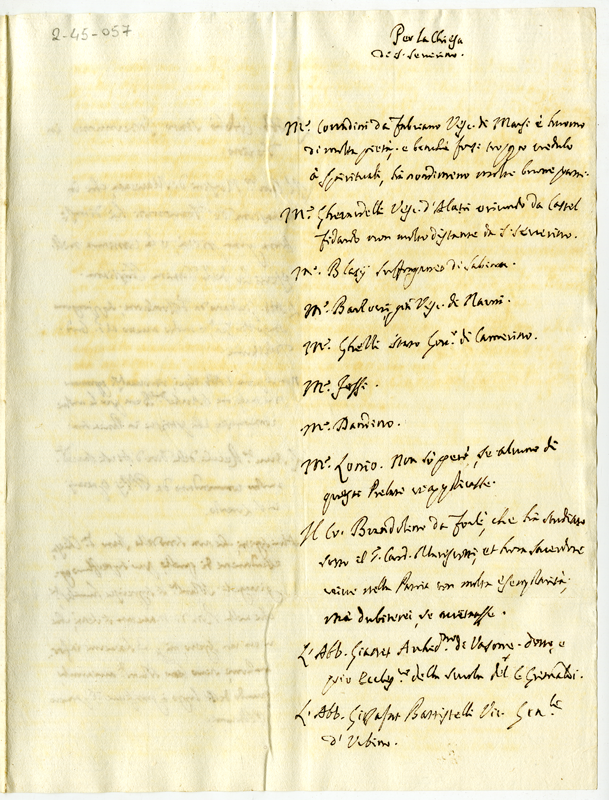 2-45-057
Per la Chiesa
di S. Severino.
Mr. Corradini da Fabriano Vesc. di Marsi è huomo
di molta pietà, e benche forsi troppo credulo
à spirituali, hà nondimeno molte buone parti.
Mr. Gherardelli Vesc. d'Alatri oriundo da Castel
fidardo non molto distante da S. Severino.
Mr. Blasij suffraganeo di Sabina.
Mr. Vesc. di Narni.
Mr. Ghelli stato Gov.r di Camerino.
Mr.
Mr. Bandino.
Mr. Lonio. Non sò però, se alcuno di
questi Prelati vi applicasse.
Il Co. Brandolino da Forlì, che hà studiato
sotto il S. Card. Marescotti, et hora sacerdote
vive nella Patria con molta esemplarità,
mà dubiterei, se accettasse.
L'Abb. di Vasone. dotto, e
pio Eccles.co della scuola del C. Grimaldi.
L'Abb. Giosafat Battistelli Vic. Gen.le
d'Urbino.